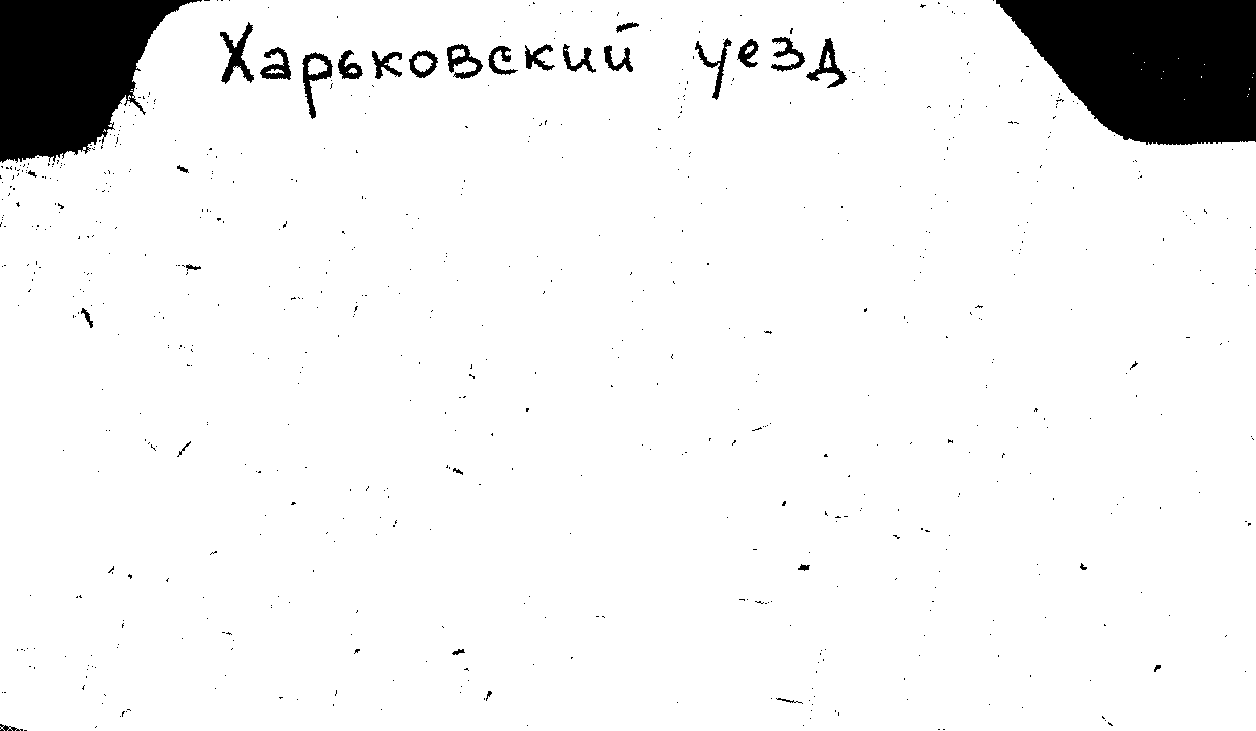 Харьковский уезд